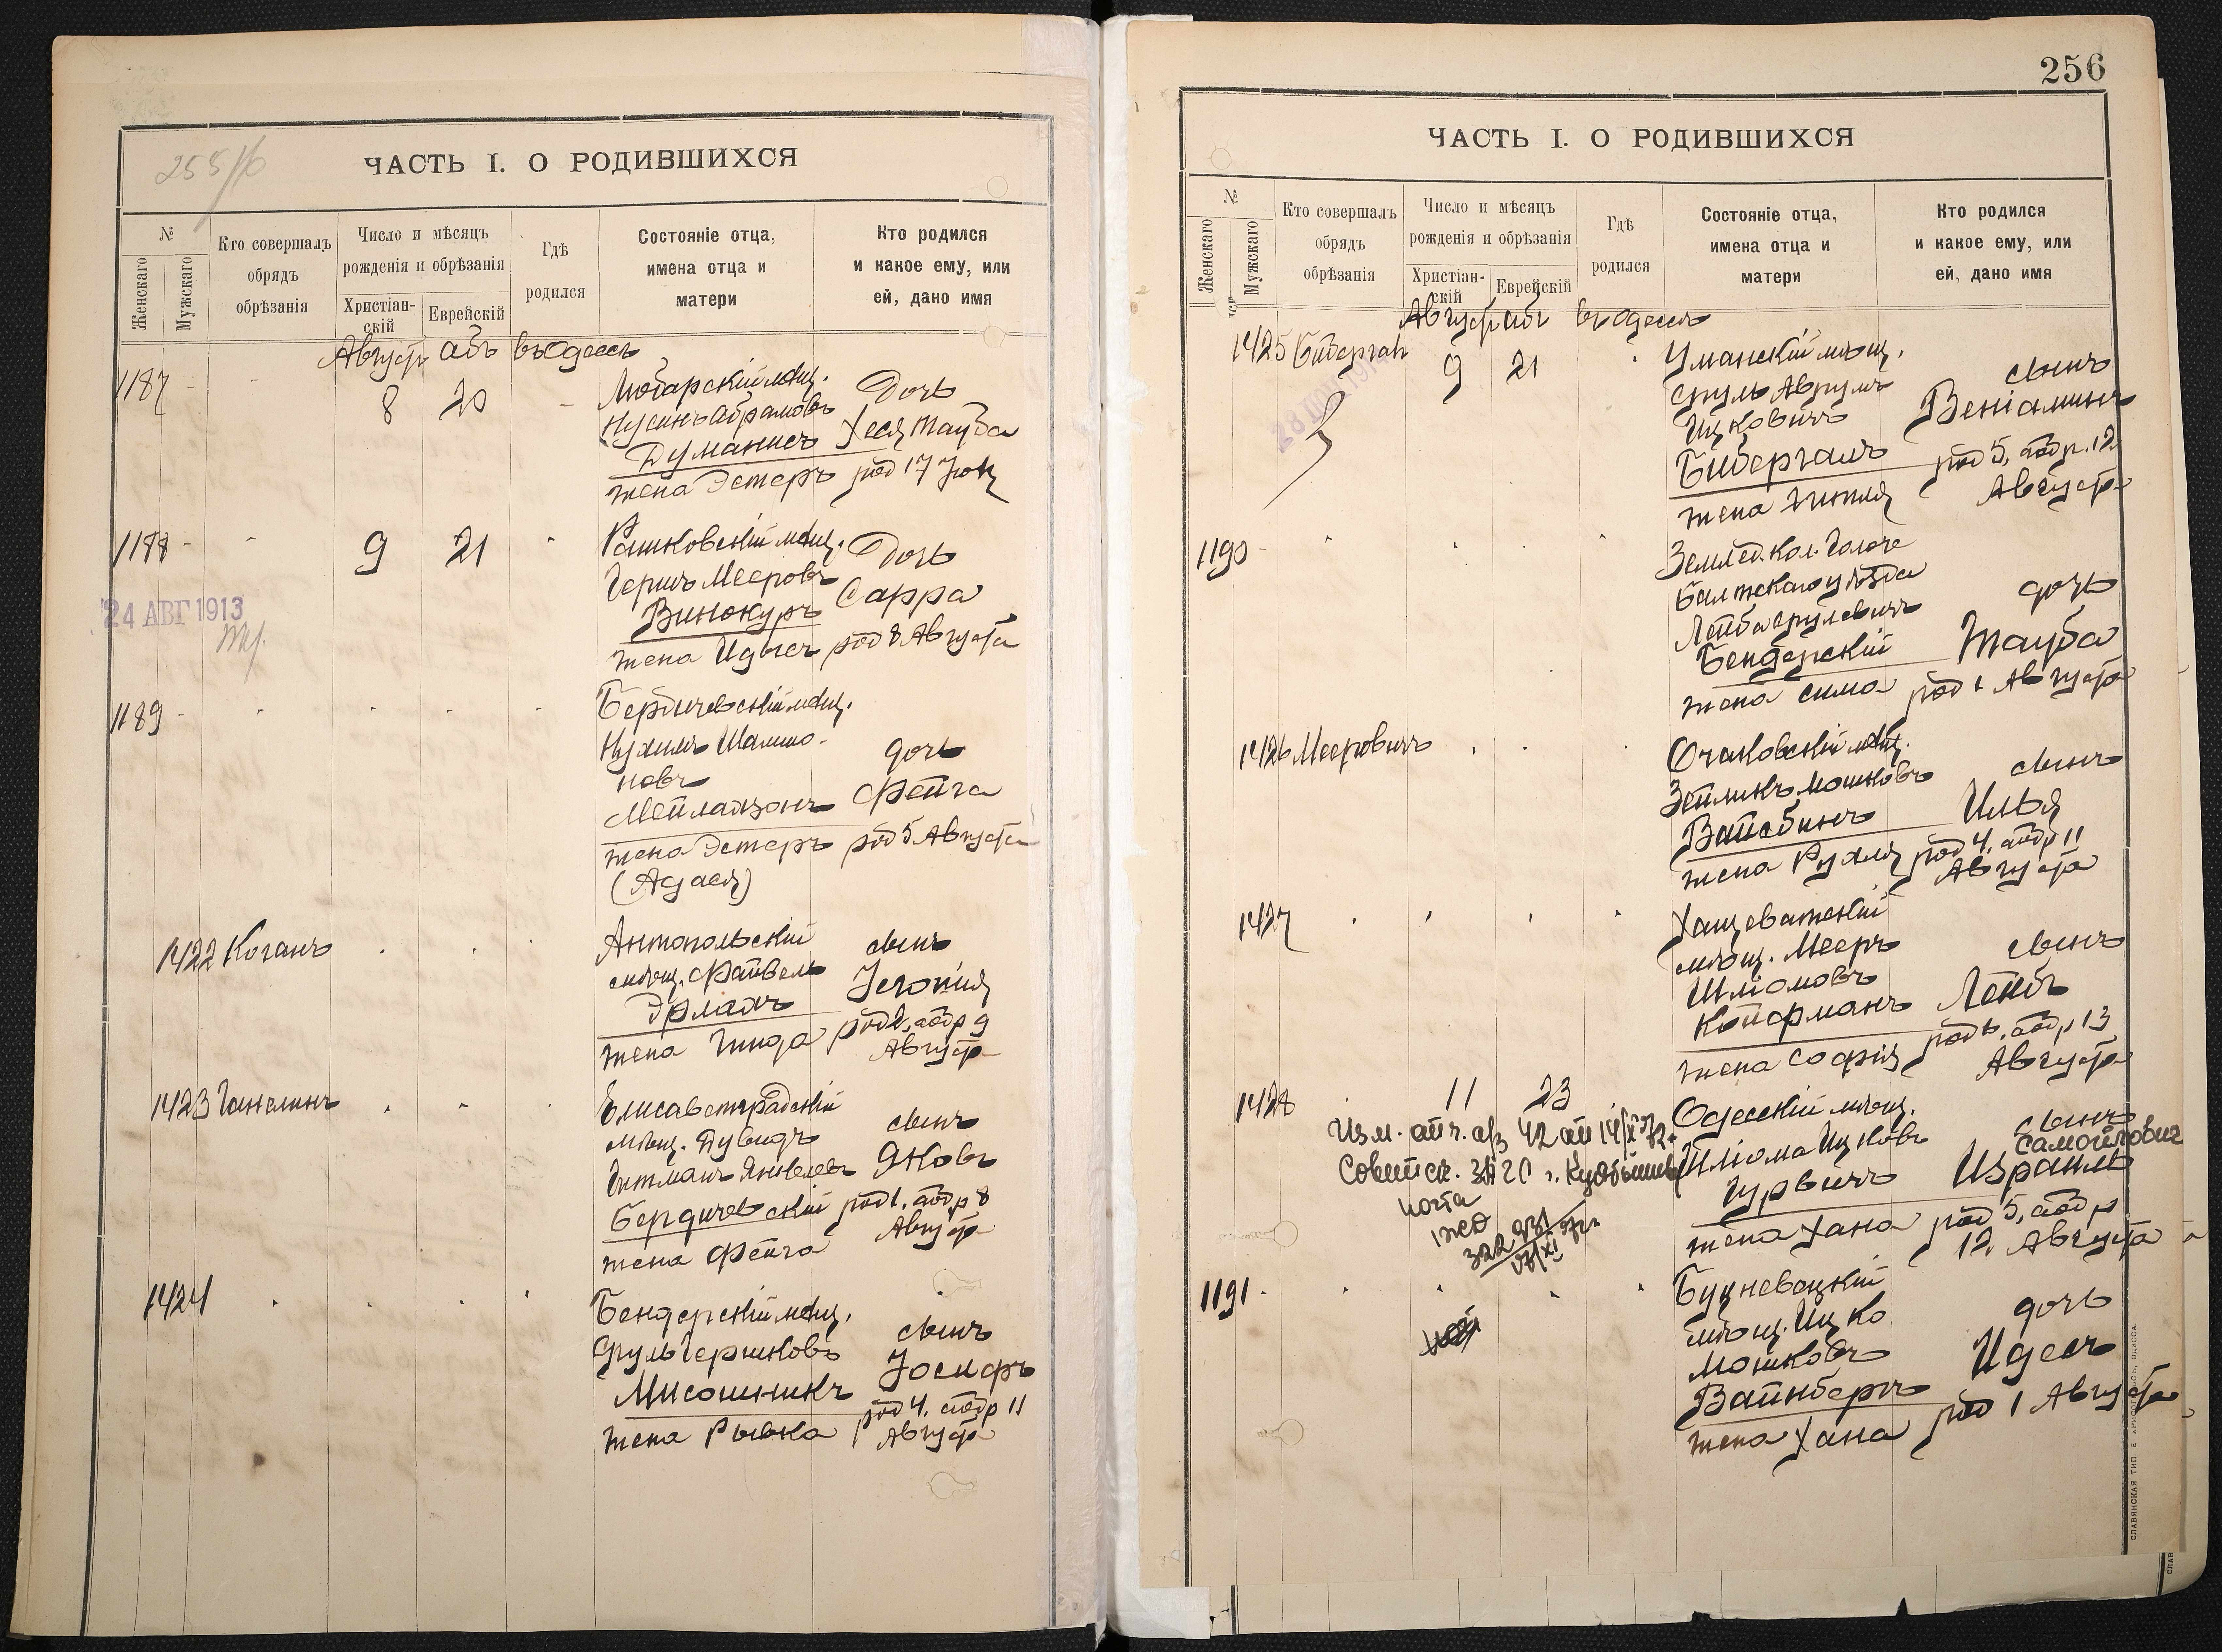 255/б
ЧАСТЬ I. О РОДИВШИХСЯ
№
Женскаго
Мужскаго
Кто совершалъ
обрядъ
обрѣзанія
Число и мѣсяцъ
рожденія и обрѣзанія
Христіан-
скій
Еврейскій
Гдѣ
родился
Состояніе отца,
имена отца и
матери
Кто родился
и какое ему, или
ей, дано имя
Август Абъ въ Одессѣ
1187
8 20
Любарскій мѣщ.
Нусинъ Абрамовъ
Думанисъ
жена Эстеръ
Дочь
Хеся Тауба
род 17
1188
9 21
24 АВГ 1913
Рашковскій мѣщ.
Гершъ Мееровъ
Винокуръ
жена Идысъ
Дочь
Сарра
род 8 Августа
1189
Бердичевскій мѣщ.
Нухимъ Шалмо-
новъ
Мейлахзонъ
жена Эстеръ
(Адася)
дочь
Фейга
род 5 Августа
1422 Коганъ
Антопольскій
мѣщ. Файвель
Эрлахъ
жена Гинда
сынъ
род 2, обр 9
Август
1423 Ганелинъ
Елисаветградскій
мѣщ. Дувидъ
Гитманъ Янкелевъ
Бердичевскій
жена Фейга
сынъ
Яковъ
род 1, обр 8
Август
1424
Бендерскій мѣщ.
Сруль Гершковъ
Мисошникъ
жена Рывка
сынъ
Іосифъ
род 4, обр 11
Август
256
ЧАСТЬ I. О РОДИВШИХСЯ
№
Женскаго
Мужскаго
Кто совершалъ
обрядъ
обрѣзанія
Число и мѣсяцъ
рожденія и обрѣзанія
Христіан-
скій
Еврейскій
Гдѣ
родился
Состояніе отца,
имена отца и
матери
Кто родился
и какое ему, или
ей, дано имя
Август Абъ въ Одессѣ
1425 Бибергал
9 21
Уманскій мѣщ.
Сруль Аврумъ
Ицковичъ
Бибергалъ
жена Гитля
сынъ
Веніаминъ
род 5, обр. 12
Августа
1190
Землед. кол. Голоче
Балтскаго уѣзда
Лейба Срулевичъ
Бендерскій
жена Сима
дочь
Тауба
род 1 Августа
1426 Мееровичъ
Очаковскій мѣщ.
Зейликъ Мошковъ
Вайсбинъ
жена Рухля
сынъ
Илья
род 4, обр 11
Августа
1427
Хащеватскій
мѣщ. Мееръ
Шліомовъ
Койфманъ
жена Софія
сынъ
Лейбъ
род 6, обр 13
Августа
1428
11 23
Одесскій мѣщ.
Шліома Ицковъ
Гурвичъ
жена Хана
сынъ
Самойлович
Израиль
род 5, обр
12 Августа
1191
Букневецкій
мѣщ. Ицко
Мошковъ
Вайнберъ
жена Хана
дочь
Идесъ
род 1 Августа